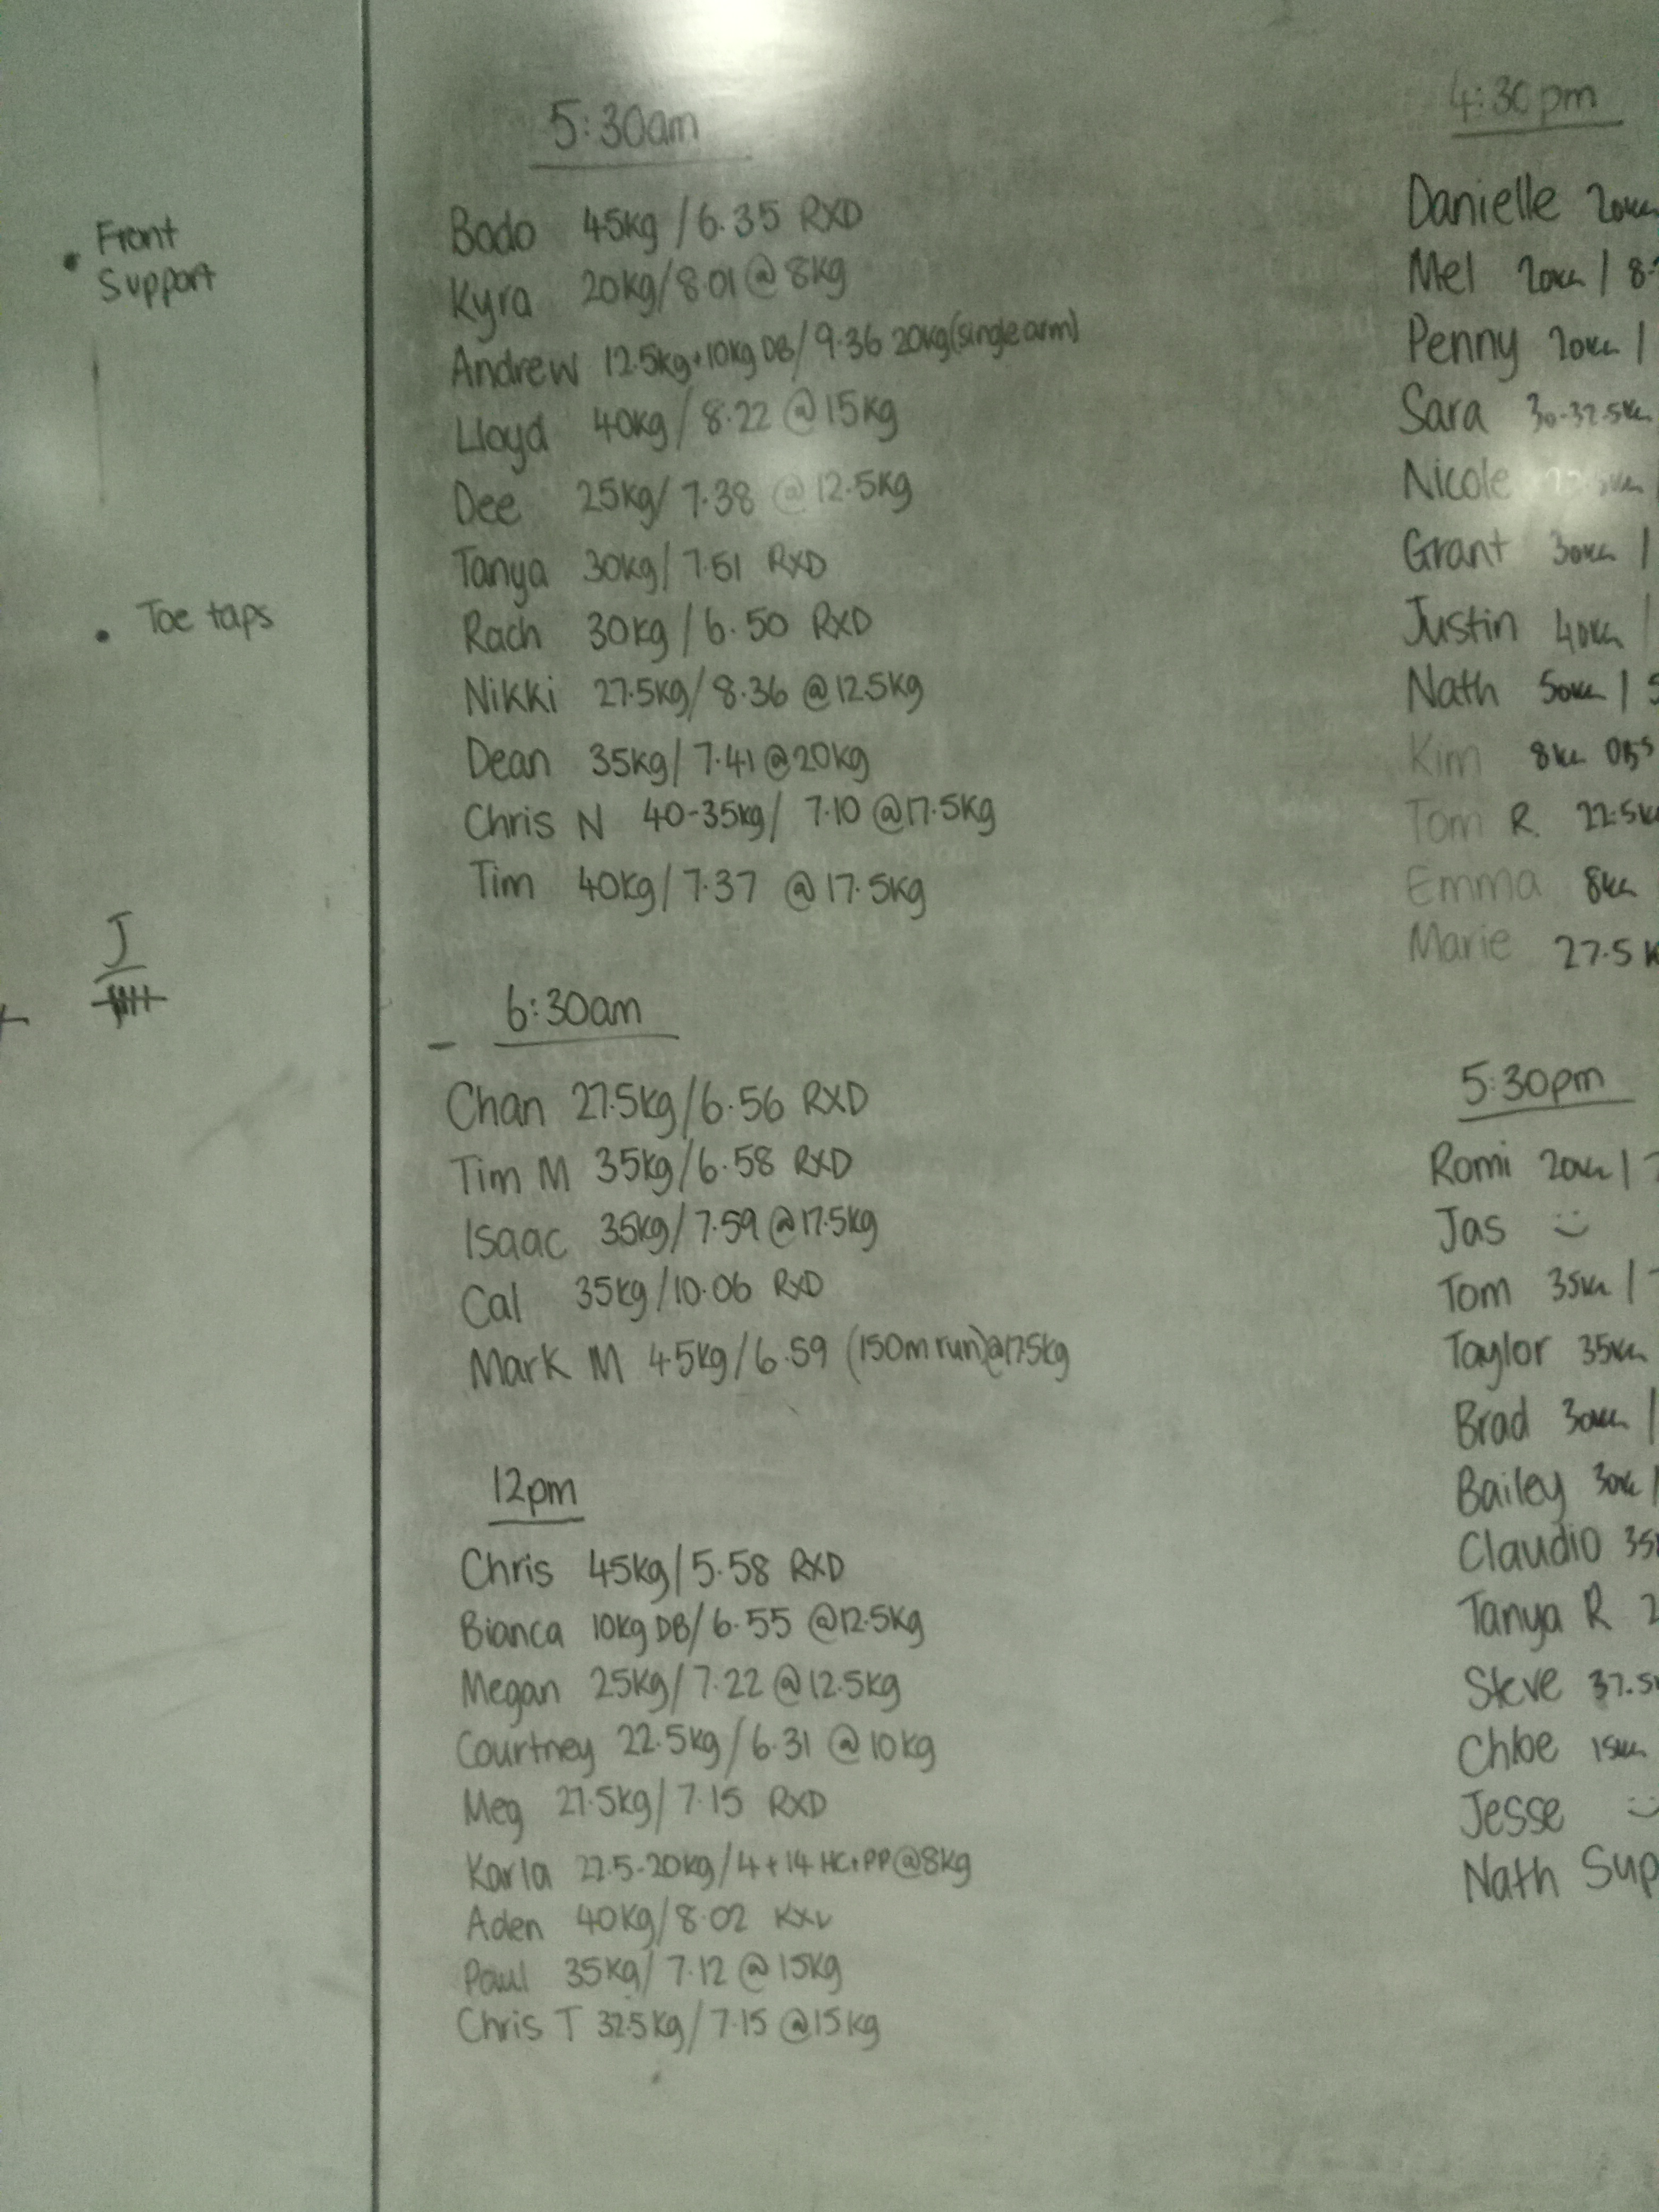 Front
Support
Toe taps
J
5:30am
Bodo 45kg / 6.35 RXD
Kyra 20kg/8.01 @ 8kg
Andrew 12.5kg+10kg DB/ 9.36 20kg(single arm)
Lloyd 40kg / 8.22 @ 15kg
Dee 25kg/ 7.38 @ 12.5kg
Tanya 30kg/ 7.51 RXD
Rach 30kg / 6.50 RXD
Nikki 27.5kg/ 8.36 @ 12.5kg
Dean 35kg/ 7.41 @ 20kg
Chris N 40-35kg/ 7.10 @ 17.5kg
Tim 40kg/ 7.37 @ 17.5kg
6:30am
Chan 27.5kg/6.56 RXD
Tim M 35kg/6.58 RXD
Isaac 35kg/ 7.59 @ 17.5kg
Cal 35kg/10.06 RXD
Mark M 45kg/6.59 (150m run)@17.5kg
12pm
Chris 45kg/5.58 RXD
Bianca 10kg DB/ 6.55 @12.5kg
Megan 25kg/ 7.22 @ 12.5kg
Courtney 22.5kg/6.31 @ 10kg
Meg 27.5kg/ 7.15 RXD
Karla 22.5-20kg/4+14 HC+PP@8kg
Aden 40kg/8.02
Paul 35kg/ 7.12 @ 15kg
Chris T 32.5kg/ 7.15 @15kg
4:30pm
Danielle 20kg
Mel 20kg / 8.
Penny 20kg /
Sara 30-32.5kg
Nicole
Grant 30kg /
Justin 40kg /
Nath 50kg /
Kim 8kg DB's
Tom R. 22.5k
Emma 8kg
Marie 27.5 k
5:30pm
Romi 20kg /
Jas
Tom 35kg /
Taylor 35kg
Brad 30kg /
Bailey 30kg /
Claudio 35
Tanya R 2
Steve 37.5
Chloe 15kg
Jesse
Nath Sup